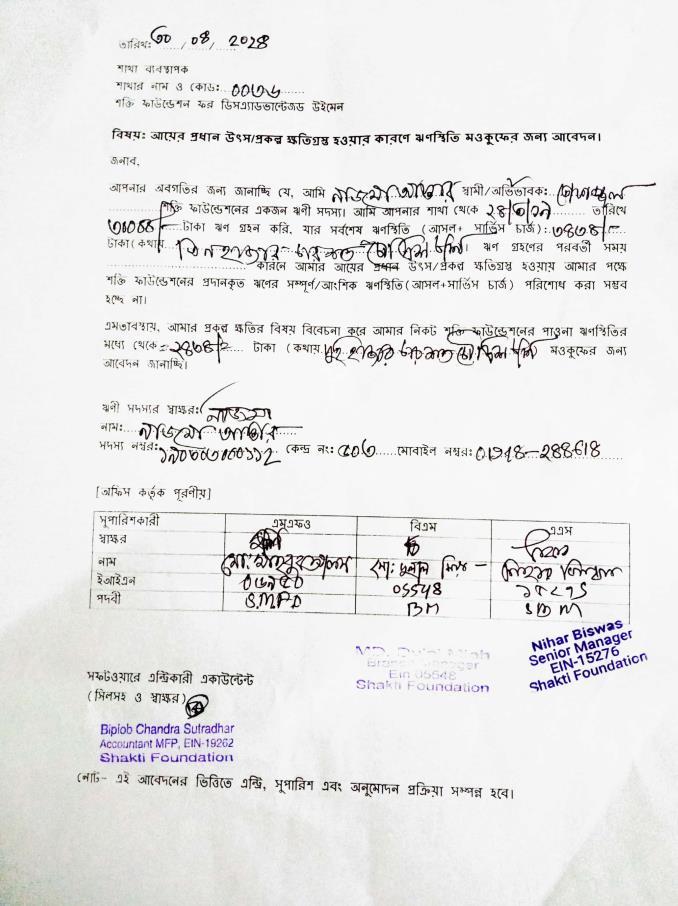 তারিখ: ৩০/০৪/২০২৪
শাখা ব্যবস্থাপক
শাখার নাম ও কোড: ০০৭৬
শক্তি ফাউন্ডেশন ফর ডিসএ্যাডভান্টেজড উইমেন
বিষয়: আয়ের প্রধান উৎস/প্রকল্প ক্ষতিগ্রস্থ হওয়ার কারণে ঋণস্থিতি মওকুফের জন্য আবেদন।
জনাব,
আপনার অবগতির জন্য জানাচ্ছি যে, আমি নাজমা আক্তার স্বামী/অভিভাবক:
শক্তি ফাউন্ডেশনের একজন ঋণী সদস্য। আমি আপনার শাখা থেকে তারিখে
টাকা ঋণ গ্রহন করি, যার সর্বশেষ ঋণস্থিতি (আসল+ সার্ভিস চার্জ): ৩৪৩৪/=
টাকা (কথায় তিন হাজার চারশত চৌত্রিশ টাকা)। ঋণ গ্রহণের পরবর্তী সময়
কারনে আমার আয়ের প্রধান উৎস/প্রকল্প ক্ষতিগ্রস্থ হওয়ায় আমার পক্ষে
শক্তি ফাউন্ডেশনের প্রদানকৃত ঋণের সম্পূর্ণ/আংশিক ঋণস্থিতি (আসল+সার্ভিস চার্জ) পরিশোধ করা সম্ভব
হচ্ছে না।
এমতাবস্থায়, আমার প্রকল্প ক্ষতির বিষয় বিবেচনা করে আমার নিকট শক্তি ফাউন্ডেশনের পাওনা ঋণস্থিতির
মধ্যে থেকে= ২৪৩৪/= টাকা (কথায় দুই হাজার চারশত চৌত্রিশ টাকা) মওকুফের জন্য
আবেদন জানাচ্ছি।
ঋণী সদস্যর স্বাক্ষর: নাজমা
নাম: নাজমা আক্তার
সদস্য নম্বর: কেন্দ্র নং: ৫০৬ মোবাইল নম্বর:
[অফিস কর্তৃক পূরণীয়]
সুপারিশকারী এমএফও বিএম এএস
স্বাক্ষর
নাম মো: মো: দুলাল মিয়া
ইআইএন 05548
পদবী BM SBM
MD. Dulal Miah
Branch Manager
Ein 05548
Shakti Foundation
Nihar Biswas
Senior Manager
EIN-15276
Shakti Foundation
সফটওয়ারে এন্ট্রিকারী একাউন্টেন্ট
(সিলসহ ও স্বাক্ষর)
Biplob Chandra Sutradhar
Accountant MFP, EIN-19262
Shakti Foundation
(নোট- এই আবেদনের ভিত্তিতে এন্ট্রি, সুপারিশ এবং অনুমোদন প্রক্রিয়া সম্পন্ন হবে।